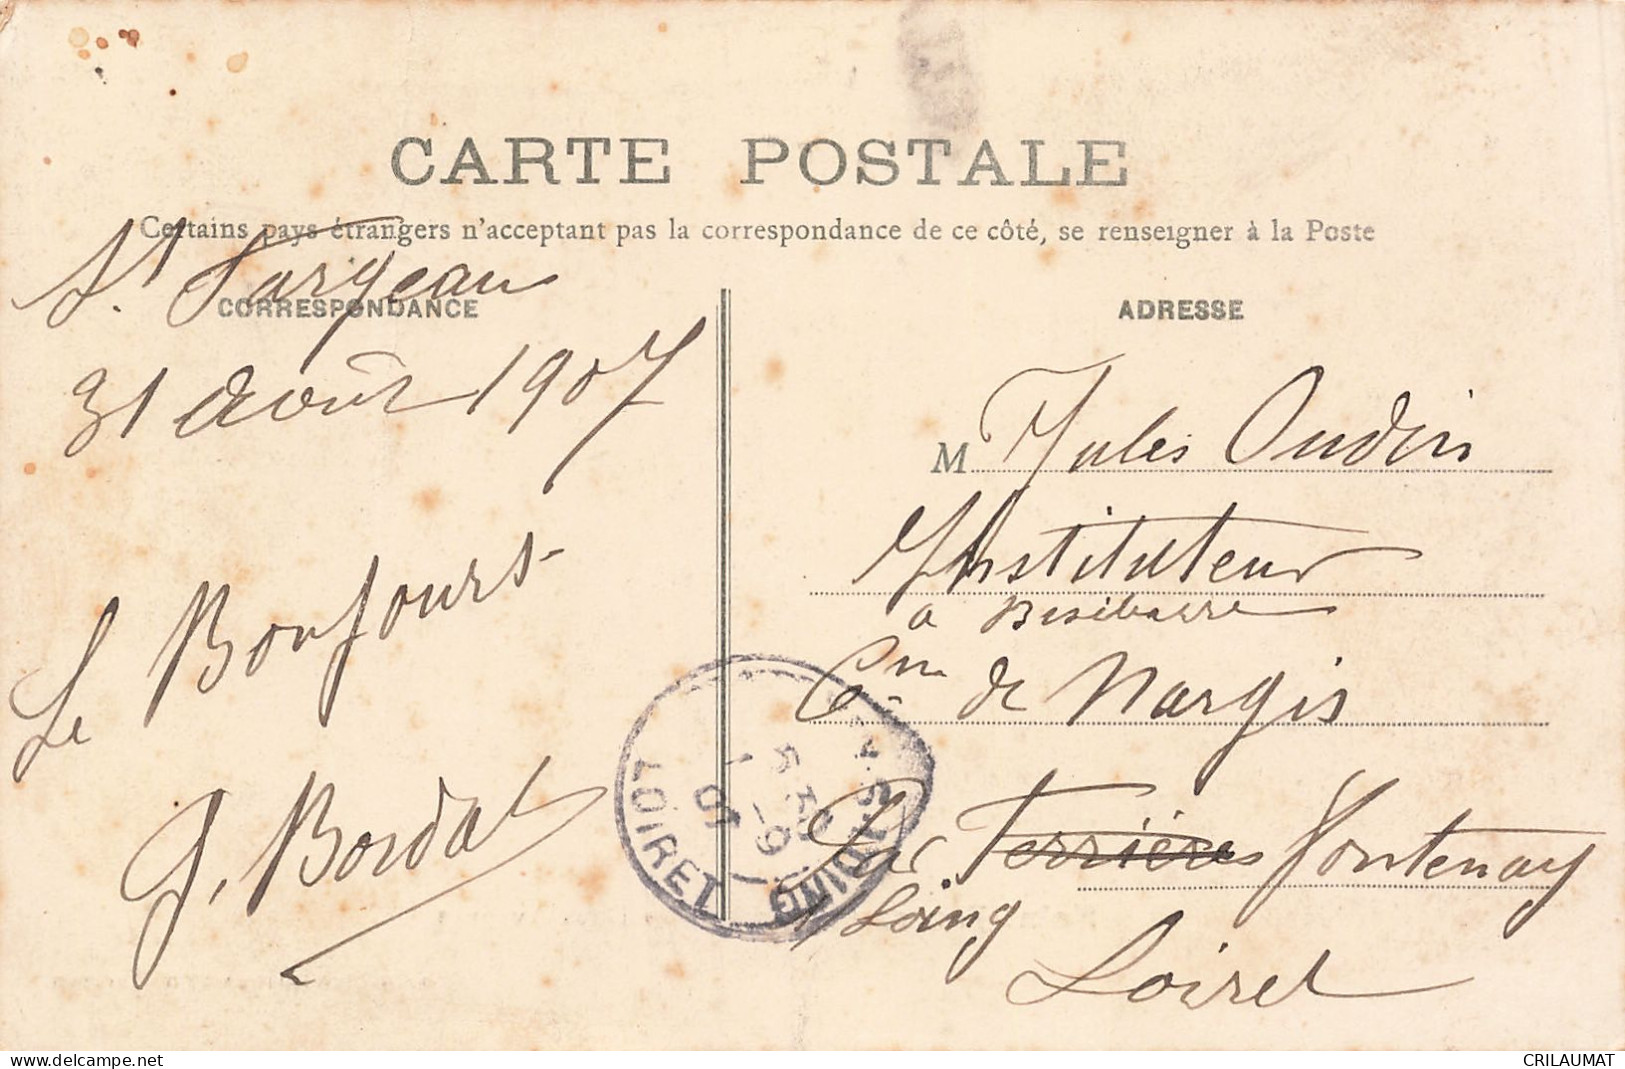 CARTE POSTALE
Certains pays étrangers n'acceptant pas la correspondance de ce côté, se renseigner à la Poste
CORRESPONDANCE
St. Fargeau
31 Août 1907
Le Bonjours
J. Bordat
ADRESSE
M Jules Oudin
Instituteur
a
Cne de Nargis
Par Ferrières Fontenay
s/ Loing
Loiret
LOIRET
5 30
1 -9
07
www.delcampe.net
CRILAUMAT